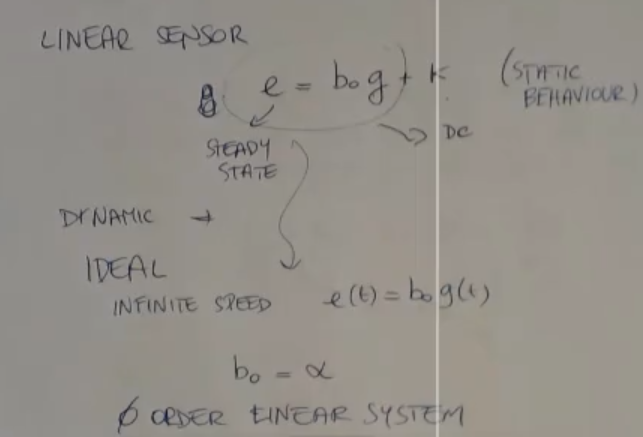 LINEAR SENSOR
e = b₀g + K (STATIC
BEHAVIOUR)
STEADY
STATE
DC
DYNAMIC →
IDEAL
INFINITE SPEED e(t) = b₀g(t)
b₀ = α
∅ ORDER LINEAR SYSTEM